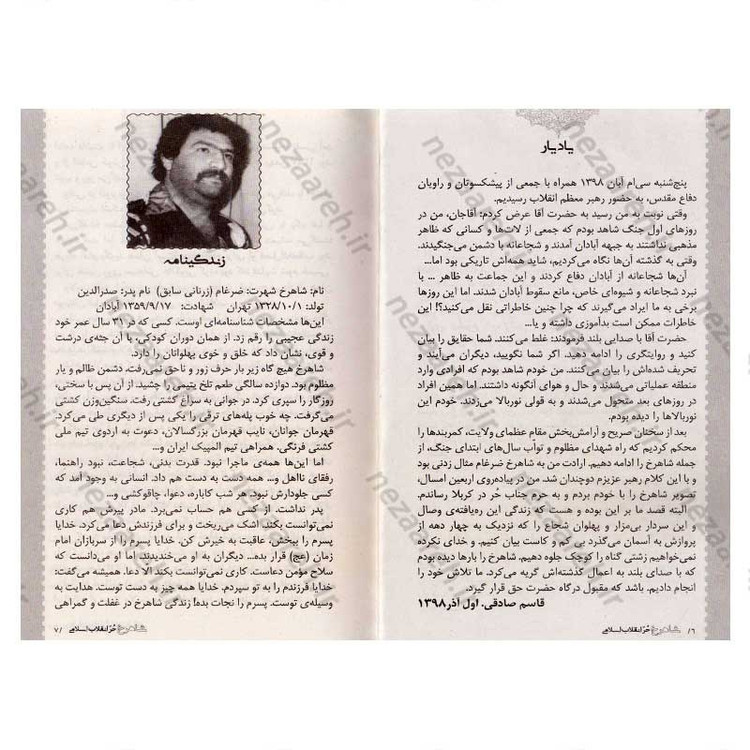 یادیار
پنج‌شنبه سی‌ام آبان ۱۳۹۸ همراه با جمعی از پیشکسوتان و راویان
دفاع مقدس، به حضور رهبر معظم انقلاب رسیدیم.
وقتی نوبت به من رسید به حضرت آقا عرض کردم: آقاجان، من در
روزهای اول جنگ شاهد بودم که جمعی از لات‌ها و کسانی که ظاهر
مذهبی نداشتند به جبهه آبادان آمدند و شجاعانه با دشمن می‌جنگیدند.
وقتی به گذشته آن‌ها نگاه می‌کردیم، شاید همه‌اش تاریکی بود اما...
آن‌ها شجاعانه از آبادان دفاع کردند و این جماعت به ظاهر ... با
نبرد شجاعانه و شیوه‌ای خاص، مانع سقوط آبادان شدند. اما این روزها
برخی به ما ایراد می‌گیرند که چرا چنین خاطراتی نقل می‌کنید؟! این
خاطرات ممکن است بدآموزی داشته و یا...
حضرت آقا با صدایی بلند فرمودند: غلط می‌کنند. شما حقایق را بیان
کنید و روایتگری را ادامه دهید. اگر شما نگویید، دیگران می‌آیند و
تحریف شده‌اش را بیان می‌کنند. من خودم شاهد بودم که افرادی وارد
منطقه عملیاتی می‌شدند و حال و هوای آنگونه داشتند. اما همین افراد
در روزهای بعد متحول می‌شدند و به قولی نوربالا می‌زدند. من خودم این
نوربالاها را دیده بودم.
بعد از سخنان صریح و آرامش‌بخش مقام عظمای ولایت، کمربندها را
محکم کردیم که راه شهدای مظلوم و توّاب سال‌های ابتدای جنگ، از
جمله شاهرخ را ادامه دهیم. ارادت من به شاهرخ ضرغام مثال زدنی بود
و با این کلام رهبر عزیزم دوچندان شد. من در پیاده‌روی اربعین امسال،
تصویر شاهرخ را با خودم بردم و به حرم جناب حُر در کربلا رساندم.
البته قصد ما بر این بوده و هست که زندگی این ره‌یافته‌ی وصال
و این سردار بی‌مزار و پهلوان شجاع را که نزدیک به چهار دهه از
پروازش به آسمان می‌گذرد بی کم و کاست بیان کنیم. و خدای نکرده
نمی‌خواهیم زشتی گناه را کوچک جلوه دهیم. شاهرخ را بارها دیده بودم
که با صدای بلند به اعمال گذشته‌اش گریه می‌کرد. ما تلاش خود را
انجام دادیم. باشد که مقبول درگاه حضرت حق قرار گیرد.
قاسم صادقی. اول آذر ۱۳۹۸
۶/ شاهرخ حُر انقلاب اسلامی
زندگینامه
نام: شاهرخ شهرت: ضرغام (زرنانی سابق) نام پدر: صدرالدین
تولد: ۱۳۲۸/۱۰/۱ تهران شهادت: ۱۳۵۹/۹/۱۷ آبادان
این‌ها مشخصات شناسنامه‌ای اوست. کسی که در ۳۱ سال عمر خود
زندگی عجیبی را رقم زد. از همان دوران کودکی، با آن جثه‌ی درشت
و قوی، نشان داد که خلق و خوی پهلوانان را دارد.
شاهرخ هیچ گاه زیر بار حرف زور و ناحق نمی‌رفت. دشمن ظالم و یار
مظلوم بود. دوازده سالگی طعم تلخ یتیمی را چشید. از آن پس با سختی،
روزگار را سپری کرد. در جوانی به سراغ کشتی رفت. سنگین‌وزن کشتی
می‌گرفت. چه خوب پله‌های ترقی را یکی پس از دیگری طی می‌کرد.
قهرمان جوانان، نایب قهرمان بزرگسالان، دعوت به اردوی تیم ملی
کشتی فرنگی. همراهی تیم المپیک ایران و...
اما این‌ها همه‌ی ماجرا نبود. قدرت بدنی، شجاعت، نبود راهنما،
رفقای نااهل و... همه دست به دست هم داد. انسانی به وجود آمد که
کسی جلودارش نبود. هر شب کاباره، دعوا، چاقوکشی و...
پدر نداشت. از کسی هم حساب نمی‌برد. مادر پیرش هم کاری
نمی‌توانست بکند. اشک می‌ریخت و برای فرزندش دعا می‌کرد. خدایا
پسرم را ببخش، عاقبت به خیرش کن. خدایا پسرم را از سربازان امام
زمان (عج) قرار بده... دیگران به او می‌خندیدند. اما او می‌دانست که
سلاح مؤمن دعاست. کاری نمی‌توانست بکند الا دعا. همیشه می‌گفت:
خدایا فرزندم را به تو سپردم. خدایا همه چیز به دست توست. هدایت به
وسیله‌ی توست. پسرم را نجات بده! زندگی شاهرخ در غفلت و گمراهی
شاهرخ حُر انقلاب اسلامی /۷
nezaareh.ir